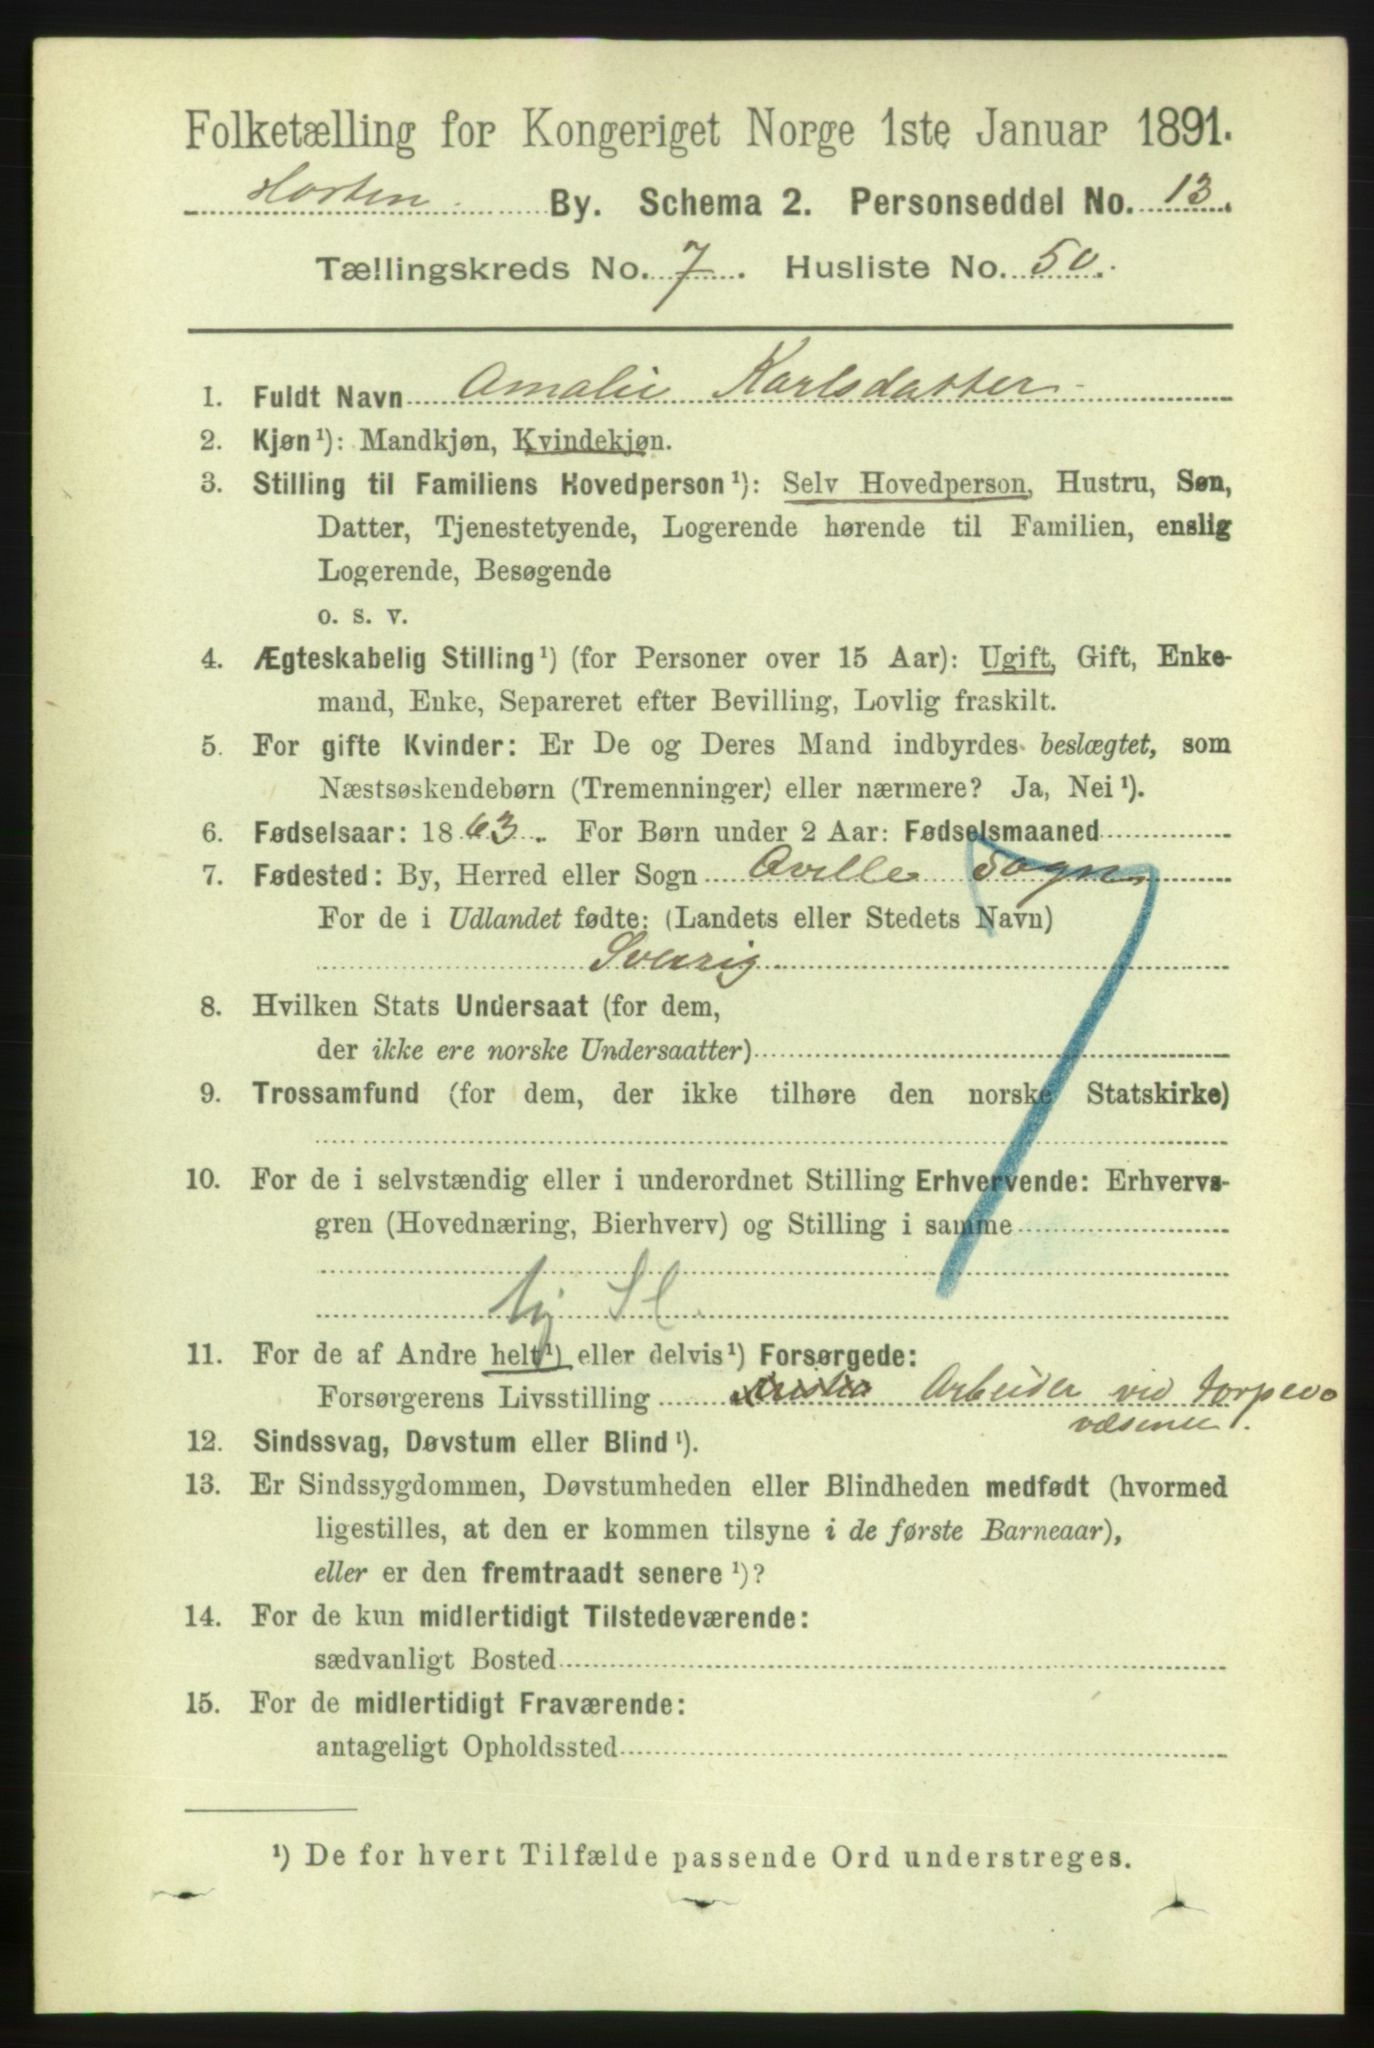 Folketælling for Kongeriget Norge 1ste Januar 1891.
Horten By. Schema 2. Personseddel No. 13.
Tællingskreds No. 7. Husliste No. 50.
1. Fuldt Navn Amalie Karlsdatter
2. Kjøn¹): Mandkjøn, Kvindekjøn.
3. Stilling til Familiens Hovedperson¹): Selv Hovedperson, Hustru, Søn,
Datter, Tjenestetyende, Logerende hørende til Familien, enslig
Logerende, Besøgende
o. s. v.
4. Ægteskabelig Stilling¹) (for Personer over 15 Aar): Ugift, Gift, Enke-
mand, Enke, Separeret efter Bevilling, Lovlig fraskilt.
5. For gifte Kvinder: Er De og Deres Mand indbyrdes beslægtet, som
Næstsøskendebørn (Tremenninger) eller nærmere? Ja, Nei¹).
6. Fødselsaar: 1863. For Børn under 2 Aar: Fødselsmaaned
7. Fødested: By, Herred eller Sogn Qville Sogn
For de i Udlandet fødte: (Landets eller Stedets Navn)
Sverig
8. Hvilken Stats Undersaat (for dem,
der ikke ere norske Undersaatter)
9. Trossamfund (for dem, der ikke tilhøre den norske Statskirke)
10. For de i selvstændig eller i underordnet Stilling Erhvervende: Erhvervs-
gren (Hovednæring, Bierhverv) og Stilling i samme
11. For de af Andre helt¹) eller delvis¹) Forsørgede:
Forsørgerens Livsstilling Arbeider ved torpedo
væsenet.
12. Sindssvag, Døvstum eller Blind¹).
13. Er Sindssygdommen, Døvstumheden eller Blindheden medfødt (hvormed
ligestilles, at den er kommen tilsyne i de første Barneaar),
eller er den fremtraadt senere¹)?
14. For de kun midlertidigt Tilstedeværende:
sædvanligt Bosted
15. For de midlertidigt Fraværende:
antageligt Opholdssted
¹) De for hvert Tilfælde passende Ord understreges.